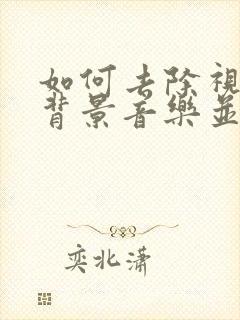 如何去除視
背景音樂並
奕北潇